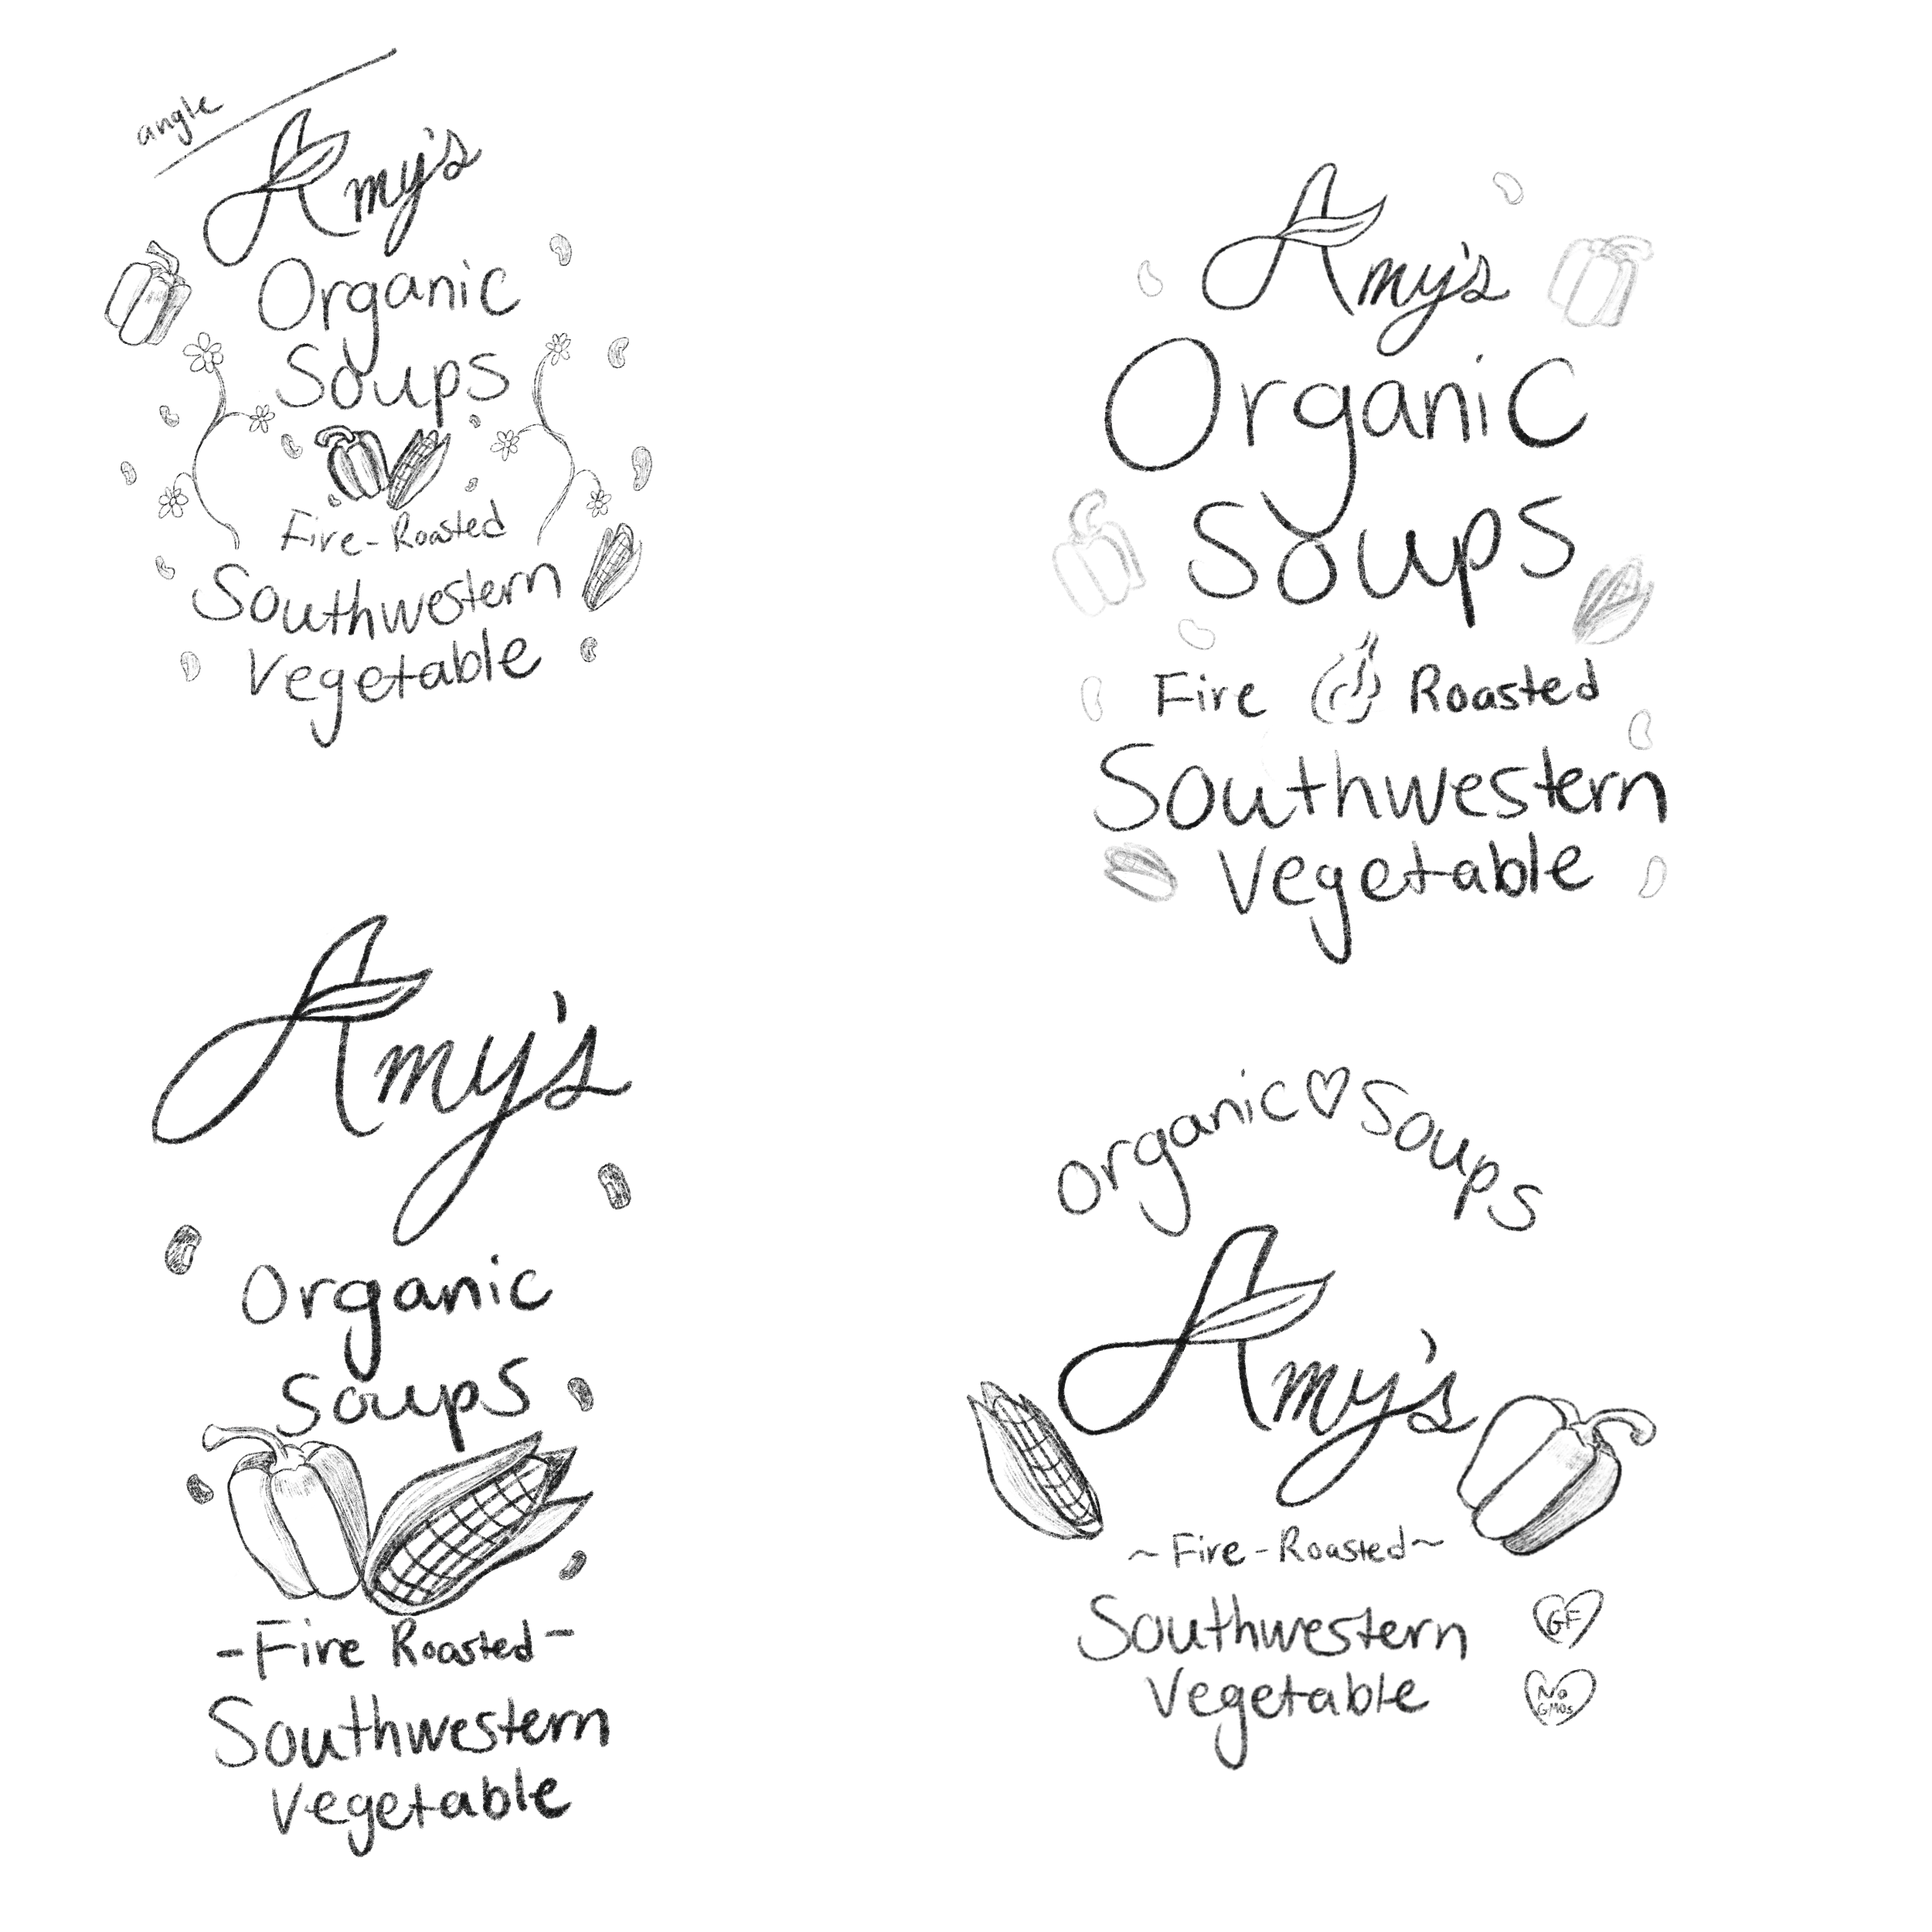 angle
Amy's
Organic
Soups
Fire-Roasted
Southwestern
Vegetable
Amy's
Organic
Soups
Fire Roasted
Southwestern
Vegetable
Amy's
Organic
Soups
-Fire Roasted-
Southwestern
Vegetable
Organic♡Soups
Amy's
~Fire-Roasted~
Southwestern
Vegetable
GF
No
GMOs